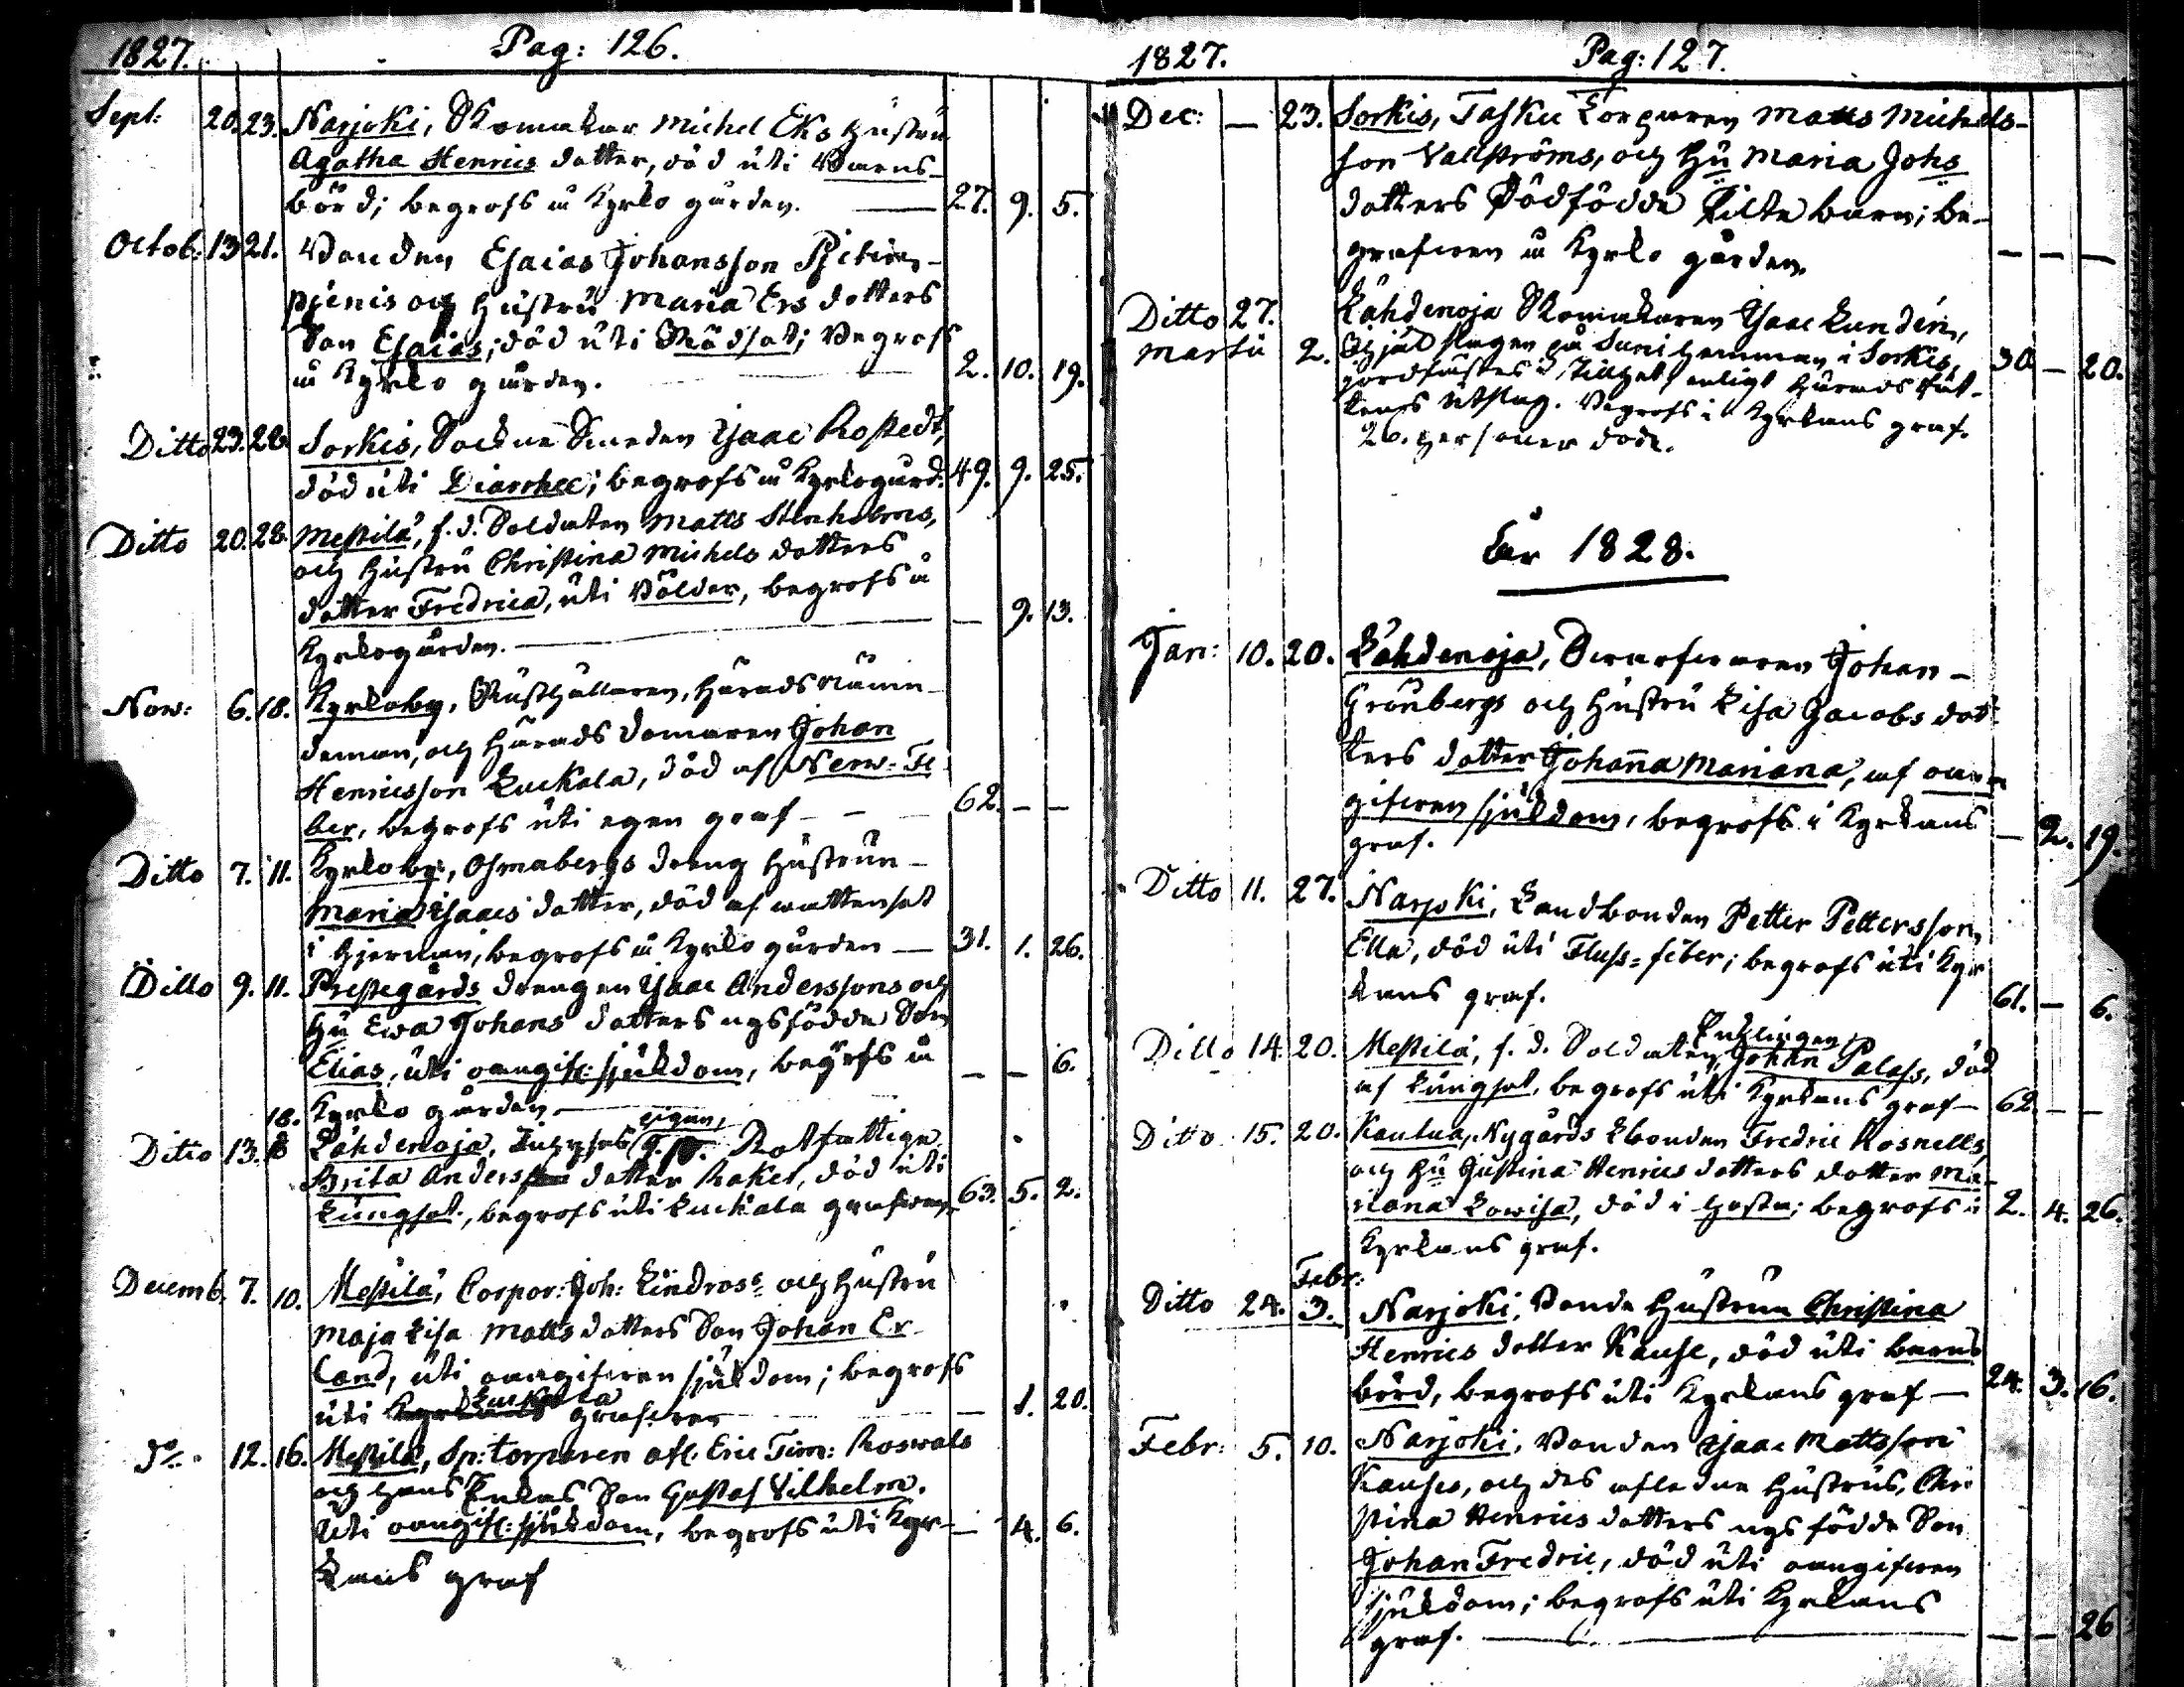 1827. Pag: 126.
Sept: 20. 23. Narjoki, Skomakar Michel Eks hustru
Agatha Henrics dotter, död uti Barns-
börd; begrofs å Kyrko gården. — 27. 9. 5.
Octob: 13 21. Bonden Esaias Johansson
och Hustru Maria Ers dotters
Son Esaias; död uti Rödsot; Begrofs
å Kyrko gården. 2. 10. 19.
Ditto 23. 28. Sorkis, Sockne Smeden Isaac Rostedt,
död uti Diarrhee; begrofs å Kyrkogård. 49. 9. 25.
Ditto 20. 28. Mestilä, f. d. Soldaten Matts Stenholms,
och Hustru Christina Michels dotters
dotter Fredrica, uti Bölder, begrofs å
Kyrkogården. — — 9. 13.
Nov: 6. 18. Kyrkoby, Rusthållaren, Härads Näm-
deman, och Härads Domaren Johan
Henricsson Luckala, död af Nerv-Fe-
ber, begrofs uti egen graf — 62. — —
Ditto 7. 11. Kyrkoby, Osmabergs dreng Hustrun
Maria Isaacs dotter, död af wattensot
i Hjernan, begrofs å Kyrko gården — 31. 1. 26.
Ditto 9. 11. Prestegårds drengen Isaac Anderssons och
Hu Ewa Johans dotters nyfödde Son
Elias, uti oangif: sjukdom, begrfs å
Kyrko gården. — — — 6.
Ditto 13. 18. Lähdenoja, Rotfattige
Brita Anders dotter Raket, död uti
Lungsot., begrofs uti Luckala grafwen 63. 5. 2.
Decemb. 7. 10. Mestilä, Corpor: Joh: Lindross och Hustru
Maja Lisa Matts dotters Son Johan Er-
land, uti oangifwen sjukdom; begrofs
uti Luckala grafwen — — 1. 20.
do 12. 16. Mestilä, Sp: torparen afl. Eric Tim: Roswals
och hans Enkas Son Gustaf Vilhelm.
Uti oangif: sjukdom, begrofs uti Kyr- — 4. 6.
kans graf
1827. Pag: 127.
Dec: — 23. Sorkis, Tasku Torparen Matts Michels-
son Vallströms, och Hu Maria Johs
dotters Dödfödde barn; be-
grafwen å Kyrko gården. — — —
Ditto 27. Lähdenoja Skomakaren Isaac Lundén,
Martii 2. Ihjäl slagen på Suni hemman i Sorkis,
jordfästes i stillhet enligt Härads Rät- 30 — 20.
tens Utslag. Begrofs i Kyrkans graf.
26. personer döde.
År 1828.
Jan: 10. 20. Lähdenoja, Swarfwaren Johan
Grönbergs och Hustru Lisa Jacobs dot-
ters dotter Johanna Mariana, af oan-
gifwen sjukdom, begrofs i Kyrkans
graf. — 2. 19.
Ditto 11. 27. Narjoki, Landbonden Petter Pettersson
Ella, död uti Fluss-feber; begrofs uti Kyr
kans graf. 61. — 6.
Ditto 14. 20. Mestilä, f. d. Soldaten, Enklingen Johan Palass, död
af Lungsot, begrofs uti Kyrkans graf — 62. — —
Ditto 15. 20. Kautua, Nygårds Lbonden Fredric Rosnells,
och Hu Justina Henrics dotters dotter Ma-
riana Lowisa, död i Hosta; begrofs i 2. 4. 26.
Kyrkans graf.
Ditto 24. Febr: 3. Narjoki, Bonde Hustrun Christina
Henrics dotter Kause, död uti barns
börd, begrofs uti Kyrkans graf — 24. 3. 16.
Febr: 5. 10. Narjoki, Bonden Isaac Mattsson
Kauses, och des afledne Hustrus, Chri
stina Henrics dotters nyfödde Son
Johan Fredric, död uti oangifwen
sjukdom; begrofs uti Kyrkans
graf. — — — 26